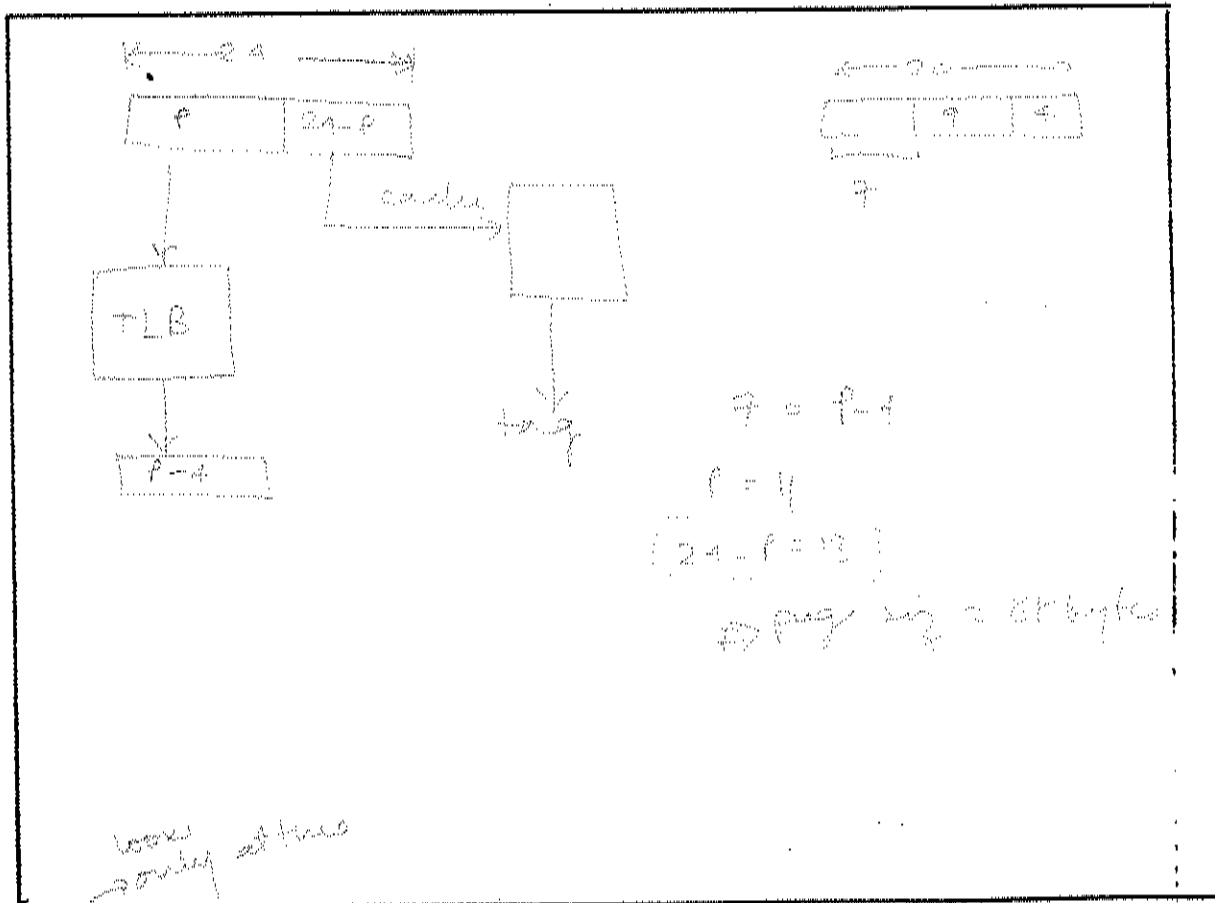 24
P
24-P
cache
TLB
tag
P-4
20
9
4
7
7 = P-4
P = 11
24-P = 13
⇒ page siz = 8K bytes
only at this